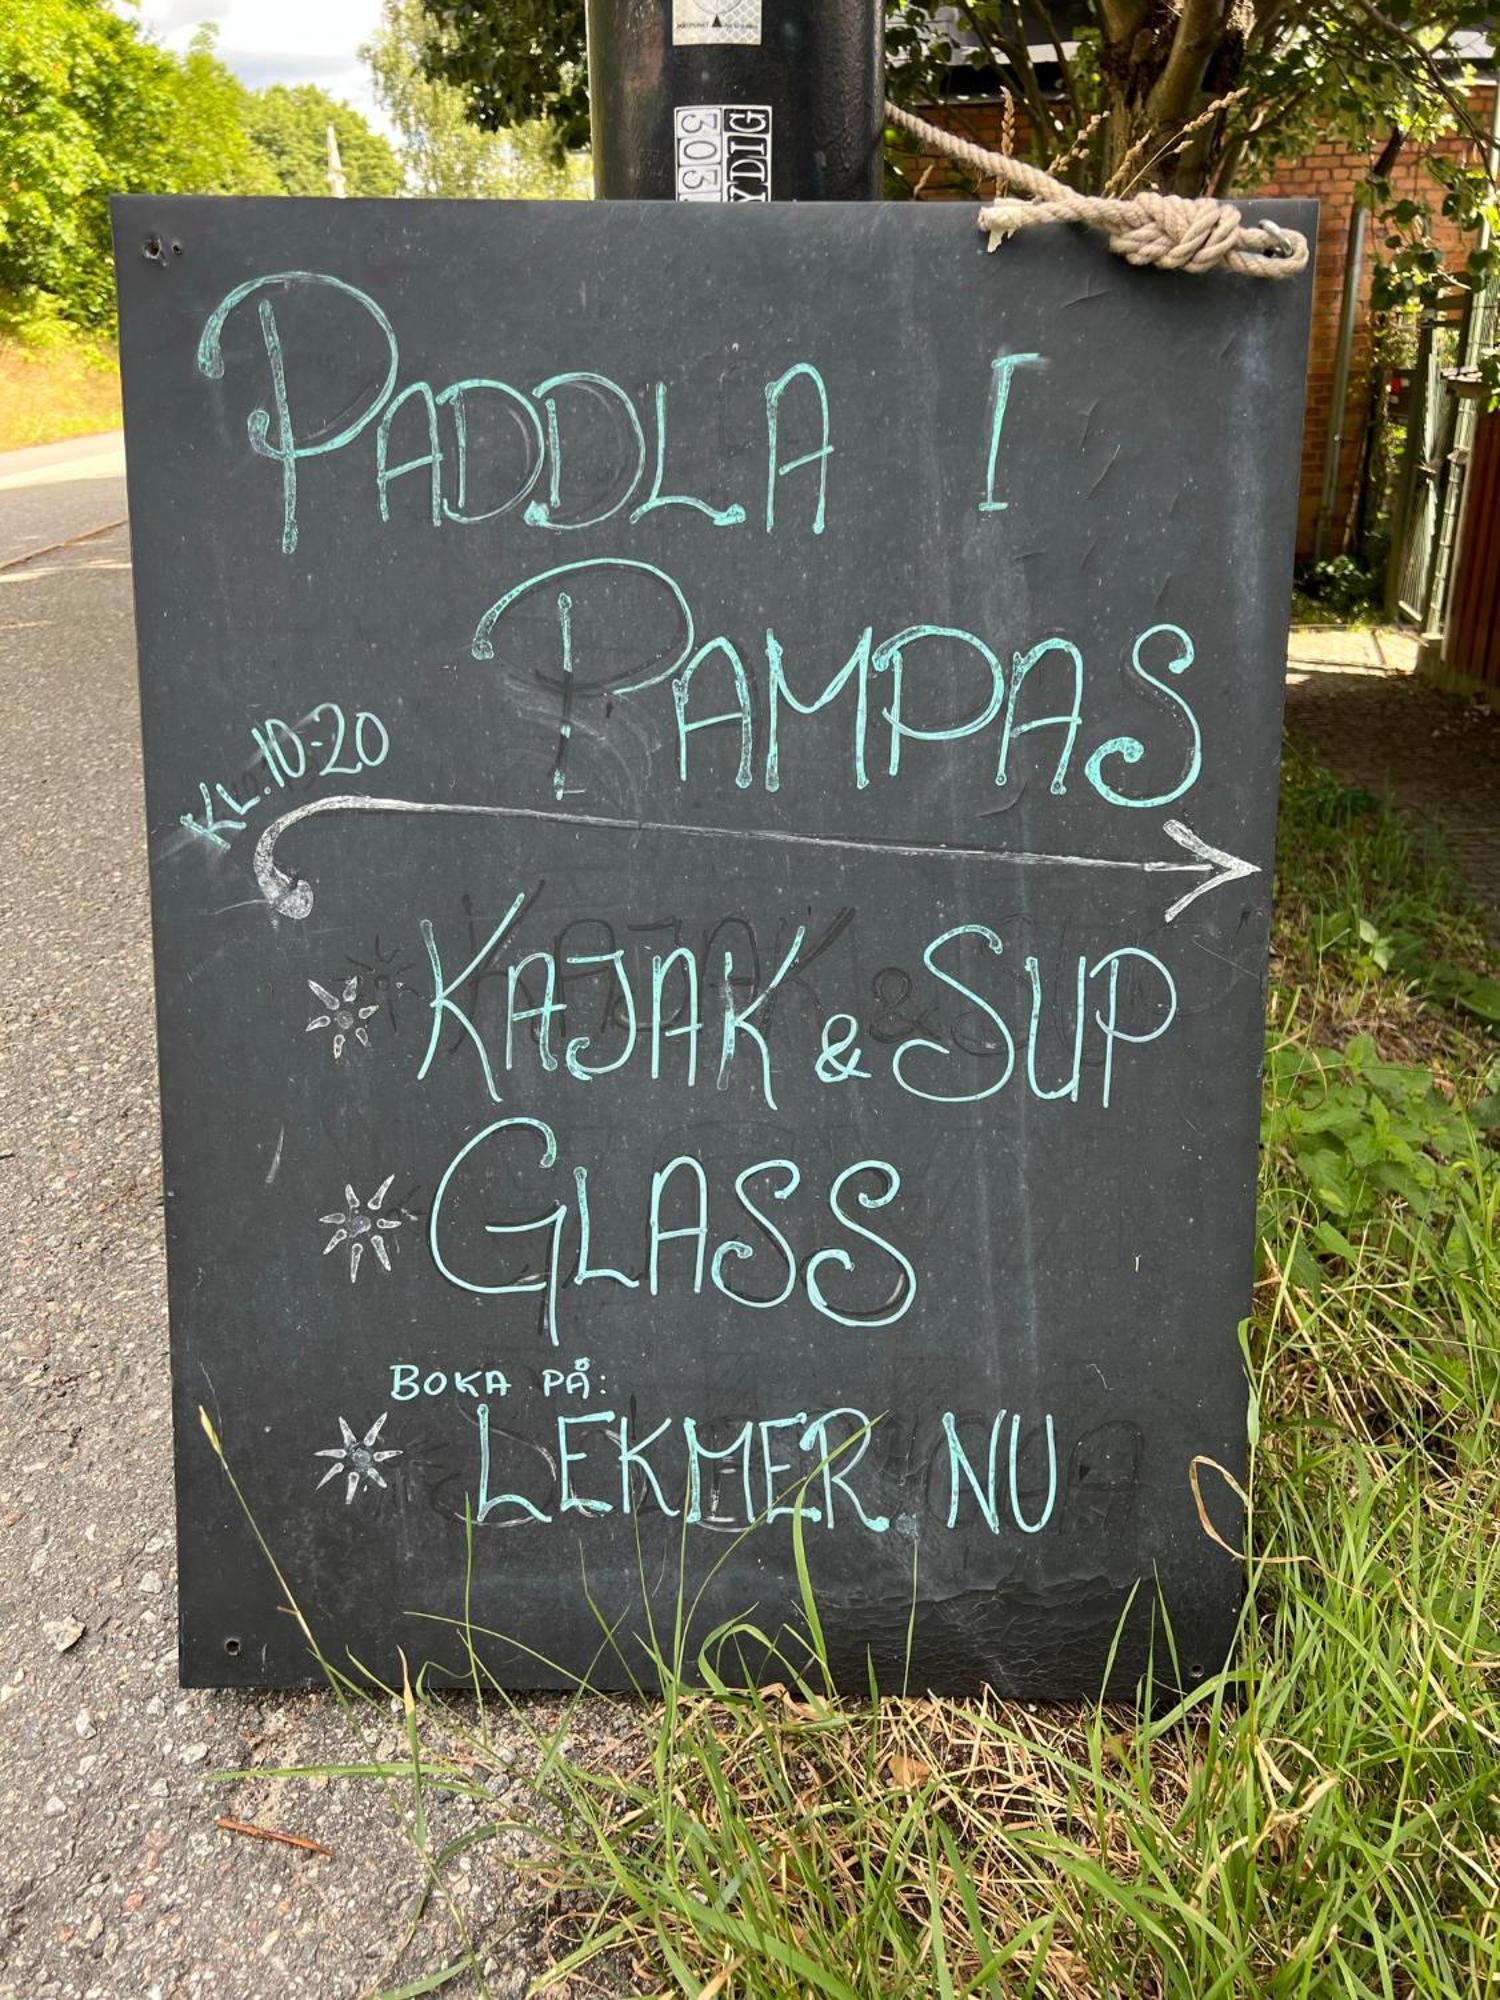 PADDLA I
PAMPAS
KL.10-20
KAJAK & SUP
GLASS
BOKA PÅ:
LEKMER.NU